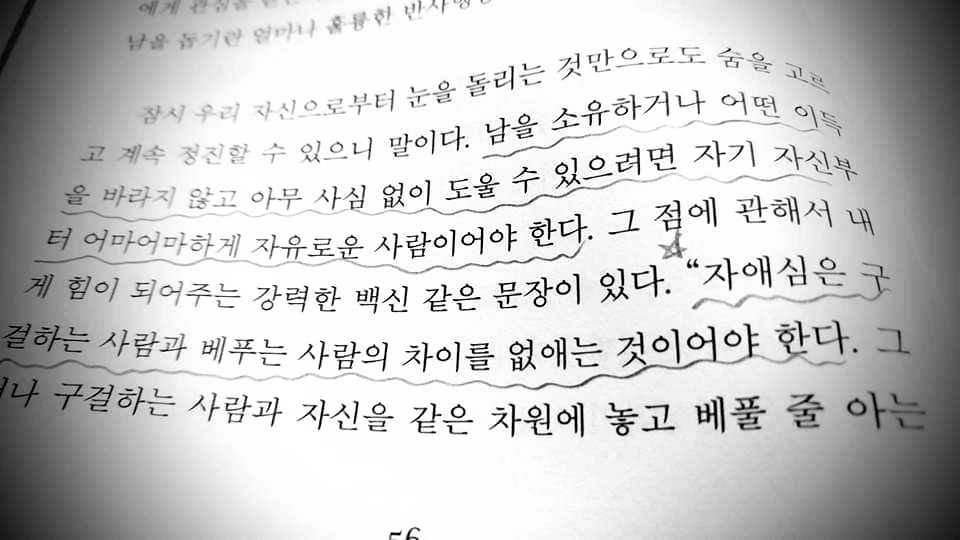 에게 관심을
남을 돕기란 얼마나 훌륭한 반사행동
잠시 우리 자신으로부터 눈을 돌리는 것만으로도 숨을 고르
고 계속 정진할 수 있으니 말이다. 남을 소유하거나 어떤 이득
을 바라지 않고 아무 사심 없이 도울 수 있으려면 자기 자신부
터 어마어마하게 자유로운 사람이어야 한다. 그 점에 관해서 내
게 힘이 되어주는 강력한 백신 같은 문장이 있다. “자애심은 구
걸하는 사람과 베푸는 사람의 차이를 없애는 것이어야 한다. 그
구걸하는 사람과 자신을 같은 차원에 놓고 베풀 줄 아는
56